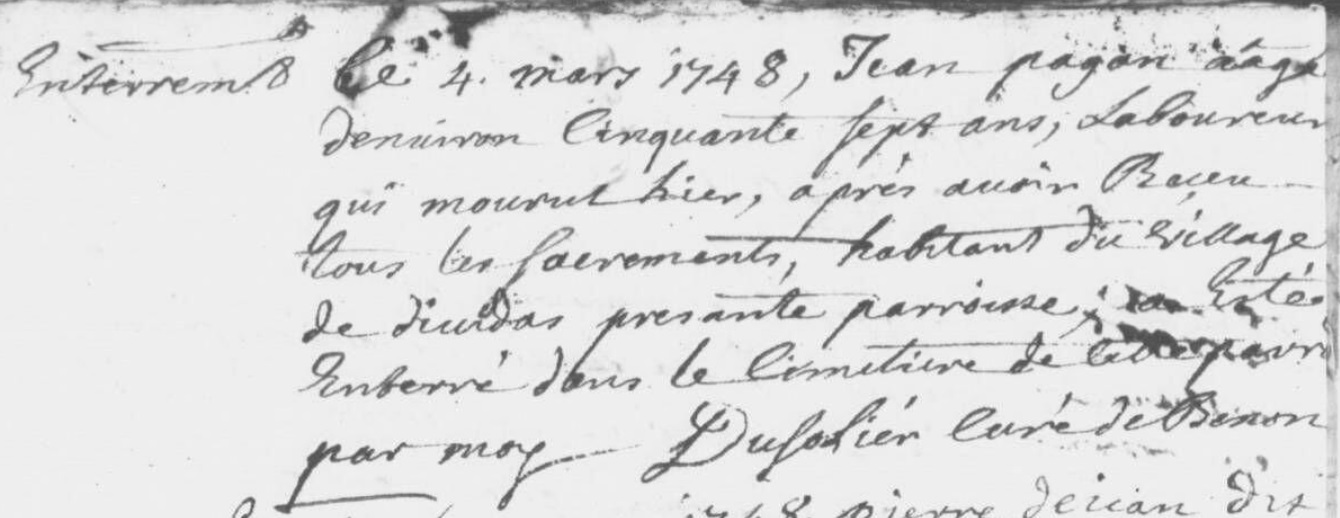 Enterremt 8 Le 4. mars 1748, Jean pagan aagé
denuiron Cinquante sept ans, Laboureur
qui mourut hier, aprés auoir Receu
tous les sacrements, habitant du Village
de diuidas presante parroisse, a Esté
Enterré dans le Cimetiere de cette parr
par moy Dusolier Curé de Benon
1748 pierre dejean dit